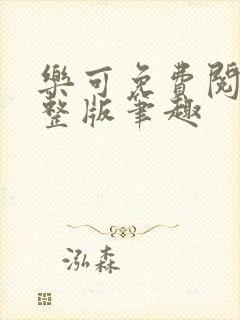 樂可免費閱
整版筆趣
泓森